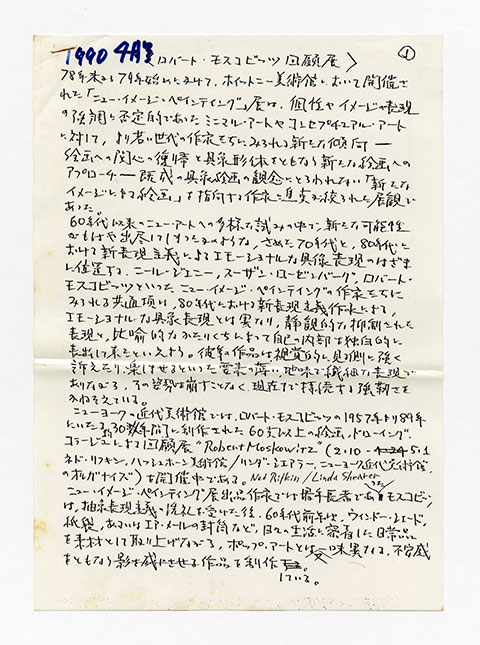 1990 4月号 〈ロバート・モスコビッツ回顧展〉 ①
78年末から79年始めにかけて、ホイットニー美術館において開催さ
れた「ニュー・イメージ・ペインティング」展は、個性やイメージの表現
の強調に否定的であったミニマル・アートやコンセプチュアル・アート
に対して、より若い世代の作家たちにみられる新たな傾向 ―
絵画への関心の復帰と具象形体をともなう新たな絵画への
アプローチ ― 既成の具象絵画の観念にとらわれない「新たな
イメージによる絵画」を指向する作家に焦点が絞られた展観で
あった。
60年代以来のニュー・アートへの多様な試みの中で、新たな可能性
がもはや出尽してしまったかのような、さめた70年代と、80年代に
おける新表現主義によるエモーショナルな具象表現のはざま
に位置する、ニール・ジェニー、スーザン・ローゼンバーグ、ロバート・
モスコビッツといったニュー・イメージ・ペインティングの作家たちに
みられる共通項は、80年代における新表現主義作家による、
エモーショナルな具象表現とは異なり、静観的な抑制された
表現と、比喩的なかたりくちによって自己の内部を独自的に
表出して来たといえよう。彼等の作品は視覚的に見る側に強く
訴えたり、楽しませるといった要素の薄い、地味で繊細な表現で
ありながら、その姿勢は崩すことなく、現在まで持続する強靭さを
かねそなえている。
ニューヨークの近代美術館では、ロバート・モスコビッツの1957年より89年
にいたる、30数年間に制作された60点以上の絵画、ドローイング、
コラージュによる回顧展 "Robert Moskowitz" (2.10 - 4.24 5.1
ネド・リフキン、ハーシュホーン美術館/リンダ・シアラー、ニューヨーク近代美術館
のオルガナイズ)を開催中である。Ned Rifkin / Linda Shearer
ニュー・イメージ・ペインティング展出品作家では最年長者であったモスコビッツ
は、抽象表現主義の洗礼を受けた後、60年代前半は、ウィンドー・シェード、
紙袋、あるいはエアーメールの封筒など、日々の生活に密着した日常品
を素材として取り上げながら、ポップ・アートとは一味異なる、不安感
をともなう影を感じさせる作品を制作
している。